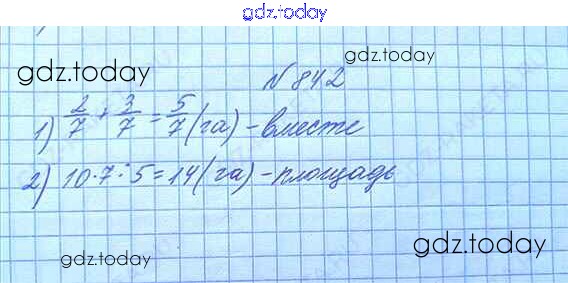 gdz.today
gdz.today
gdz.today
№ 842
1) 2/7 + 3/7 = 5/7 (га) - вместе
2) 10·7:5=14 (га) - площадь
gdz.today
gdz.today